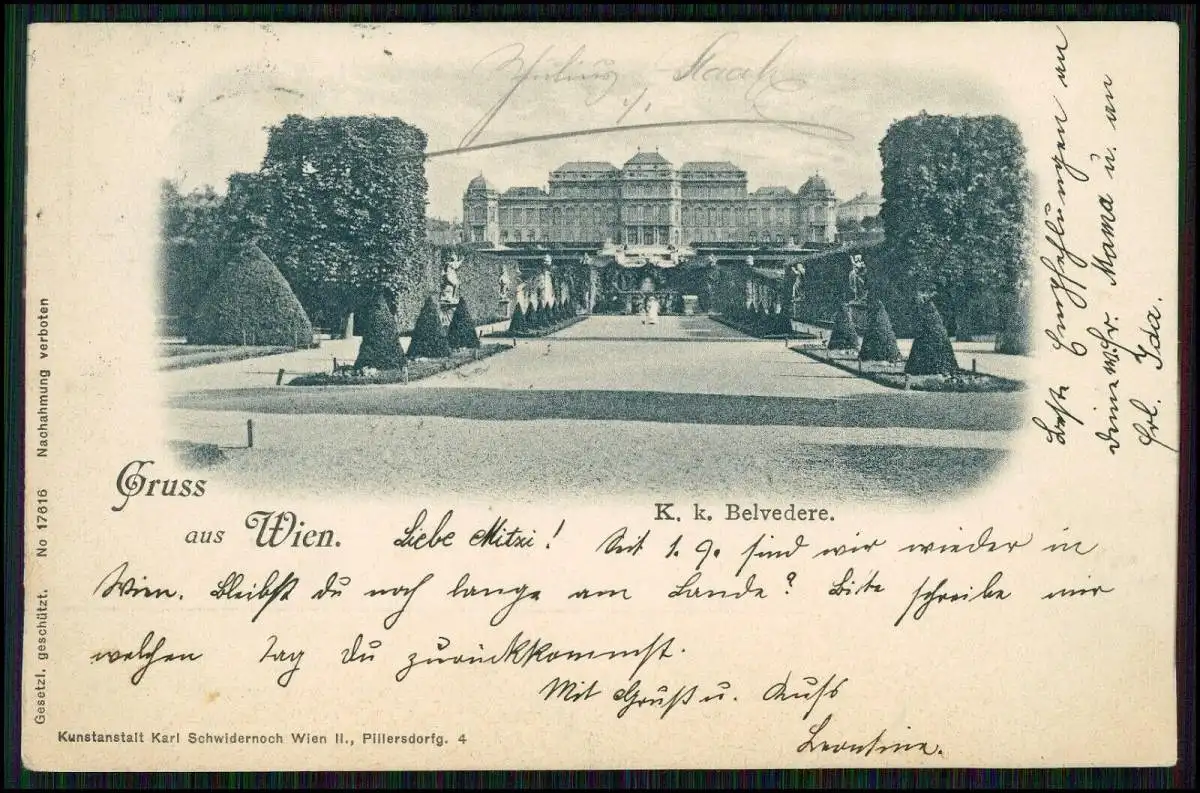 Gruss
aus Wien.
K. k. Belvedere.
Liebe Mitzi! Seit 1. 9. sind wir wieder in
Wien. Bleibst du noch lange am Lande? Bitte schreibe mir
welchen Tag du zurückkommst.
Mit Gruß u. Kuss
Leontine.
Beste Empfehlungen an
deine w. Fr. Mama u. an
Frl. Ida.
Gesetzl. geschützt. No 17616 Nachahmung verboten
Kunstanstalt Karl Schwidernoch Wien II., Pillersdorfg. 4